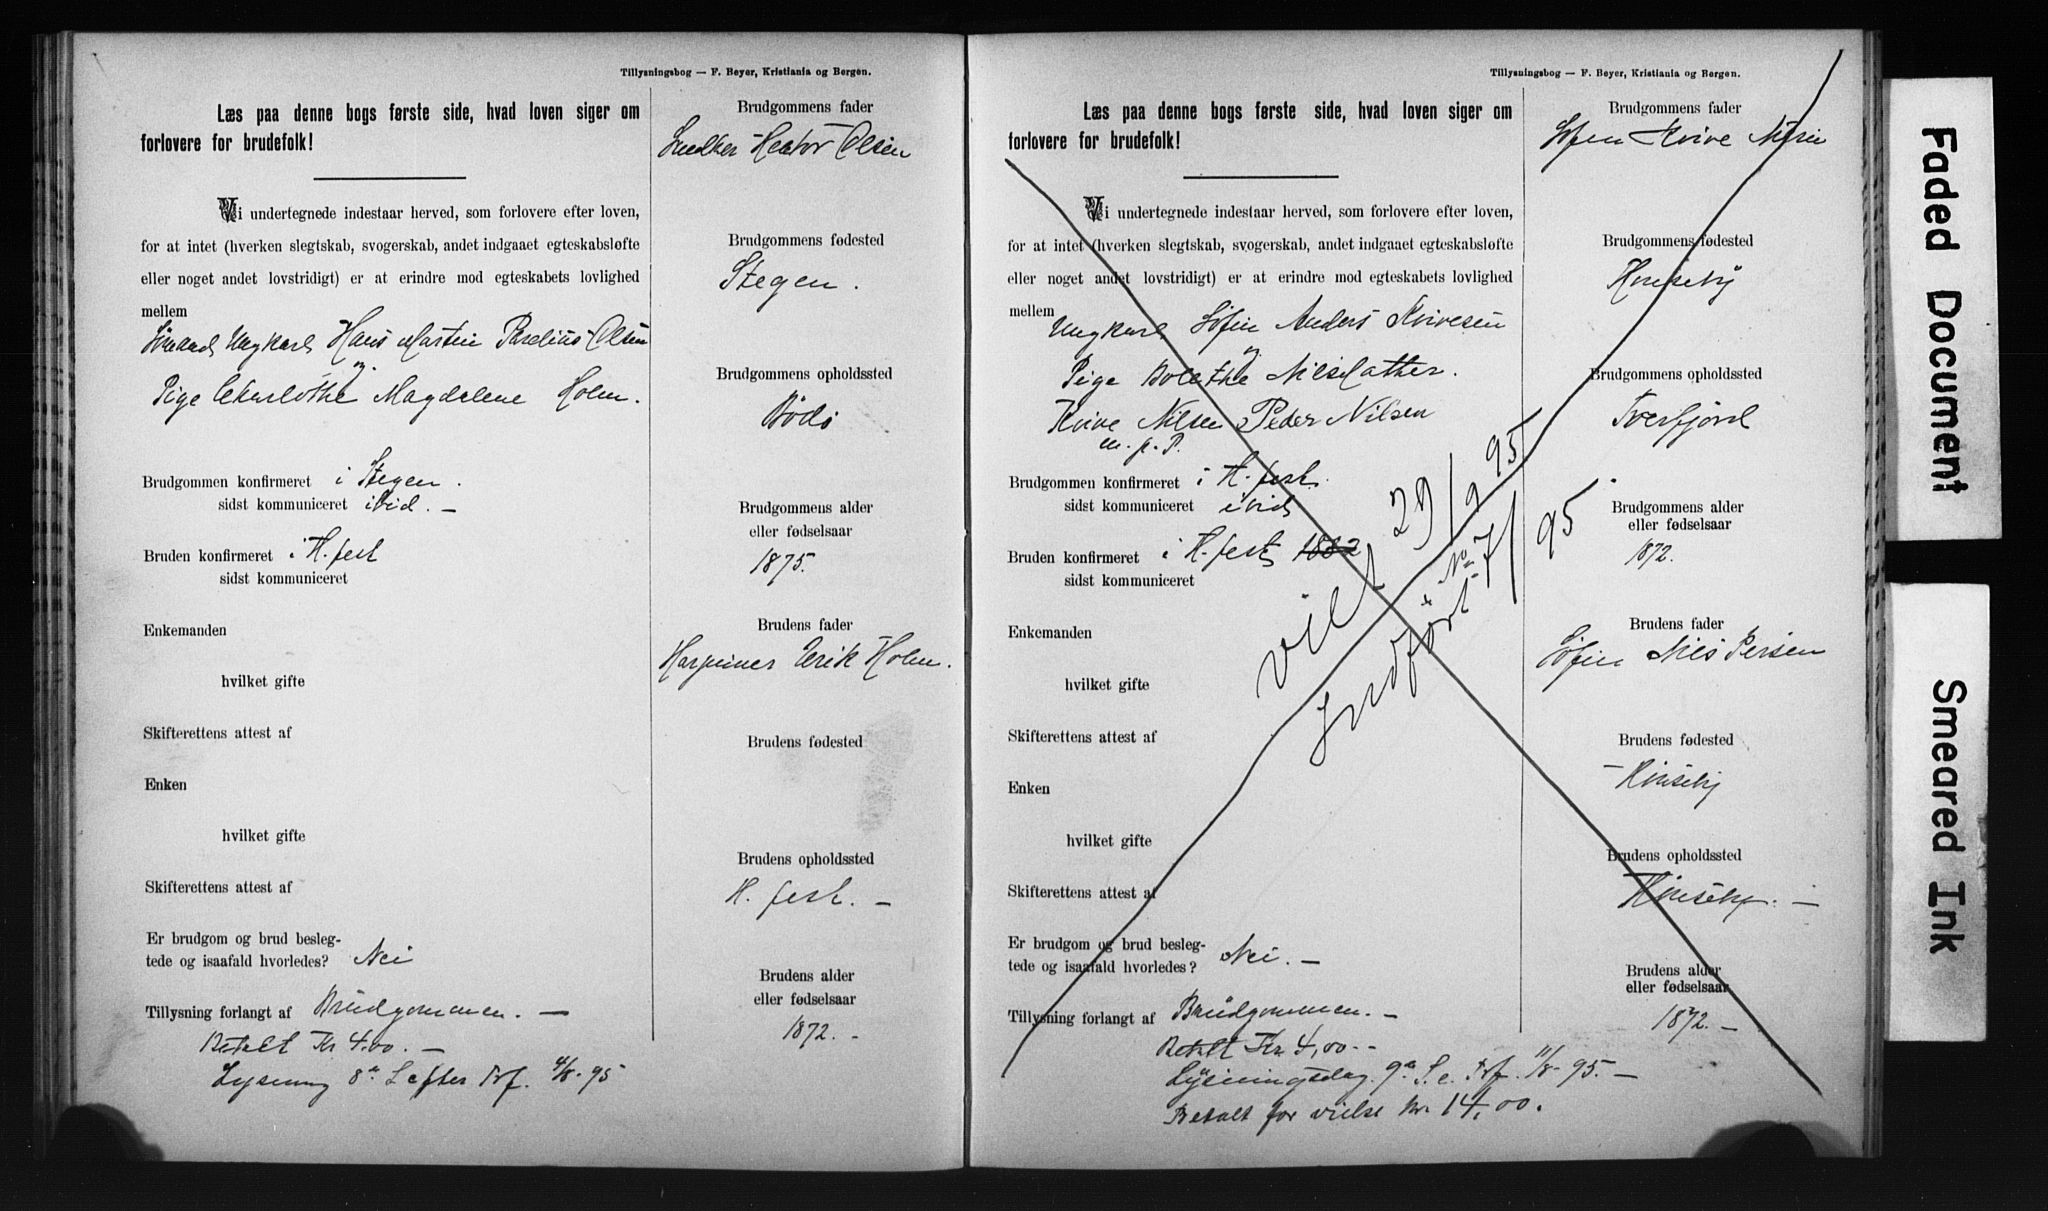 Tillysningsbog — F. Beyer, Kristiania og Bergen.
Læs paa denne bogs første side, hvad loven siger om
forlovere for brudefolk!
Vi undertegnede indestaar herved, som forlovere efter loven,
for at intet (hverken slegtskab, svogerskab, andet indgaaet egteskabsløfte
eller noget andet lovstridigt) er at erindre mod egteskabets lovlighed
mellem
Ungkarl Hans Martin Parelius Olsen
og
Pige Magdalene Holm.
Brudgommen konfirmeret i Stegen.
sidst kommuniceret ibid. —
Bruden konfirmeret i H.fest
sidst kommuniceret
Enkemanden
hvilket gifte
Skifterettens attest af
Enken
hvilket gifte
Skifterettens attest af
Er brudgom og brud besleg-
tede og isaafald hvorledes? Nei
Tillysning forlangt af Brudgommen. —
Betalt Kr 4.00. —
Lysning 8de S efter Trf. 4/8-95
Brudgommens fader
Hector Olsen
Brudgommens fødested
Stegen.
Brudgommens opholdssted
Bodø
Brudgommens alder
eller fødselsaar
1875.
Brudens fader
Erik Holm.
Brudens fødested
Brudens opholdssted
H.fest. —
Brudens alder
eller fødselsaar
1872. —
Tillysningsbog — F. Beyer, Kristiania og Bergen.
Læs paa denne bogs første side, hvad loven siger om
forlovere for brudefolk!
Vi undertegnede indestaar herved, som forlovere efter loven,
for at intet (hverken slegtskab, svogerskab, andet indgaaet egteskabsløfte
eller noget andet lovstridigt) er at erindre mod egteskabets lovlighed
mellem
Ungkarl Søfin Anders Kvivesen
og
Pige Bolethe Nilsdatter.
Kvive Nilsen Peder Nilsen
m. p. P.
Brudgommen konfirmeret i H.fest.
sidst kommuniceret ibid
Bruden konfirmeret i H.fest 1882
sidst kommuniceret
Enkemanden
hvilket gifte
Skifterettens attest af
Enken
hvilket gifte
Skifterettens attest af
Er brudgom og brud besleg-
tede og isaafald hvorledes? Nei. —
Tillysning forlangt af Brudgommen. —
Betalt Kr. 4,00. -
Lysningsdag 9de S. e. Trf. 11/8-95. —
Betalt for vielse kr. 14,00.
viet 29/9 95
Indført No 7/95
Brudgommens fader
Søfin Kvive Nilsen
Brudgommens fødested
Brudgommens opholdssted
Tverfjord
Brudgommens alder
eller fødselsaar
1872.
Brudens fader
Søfin Nils Persen
Brudens fødested
Brudens opholdssted
Brudens alder
eller fødselsaar
1872. —
Faded Document
Smeared Ink